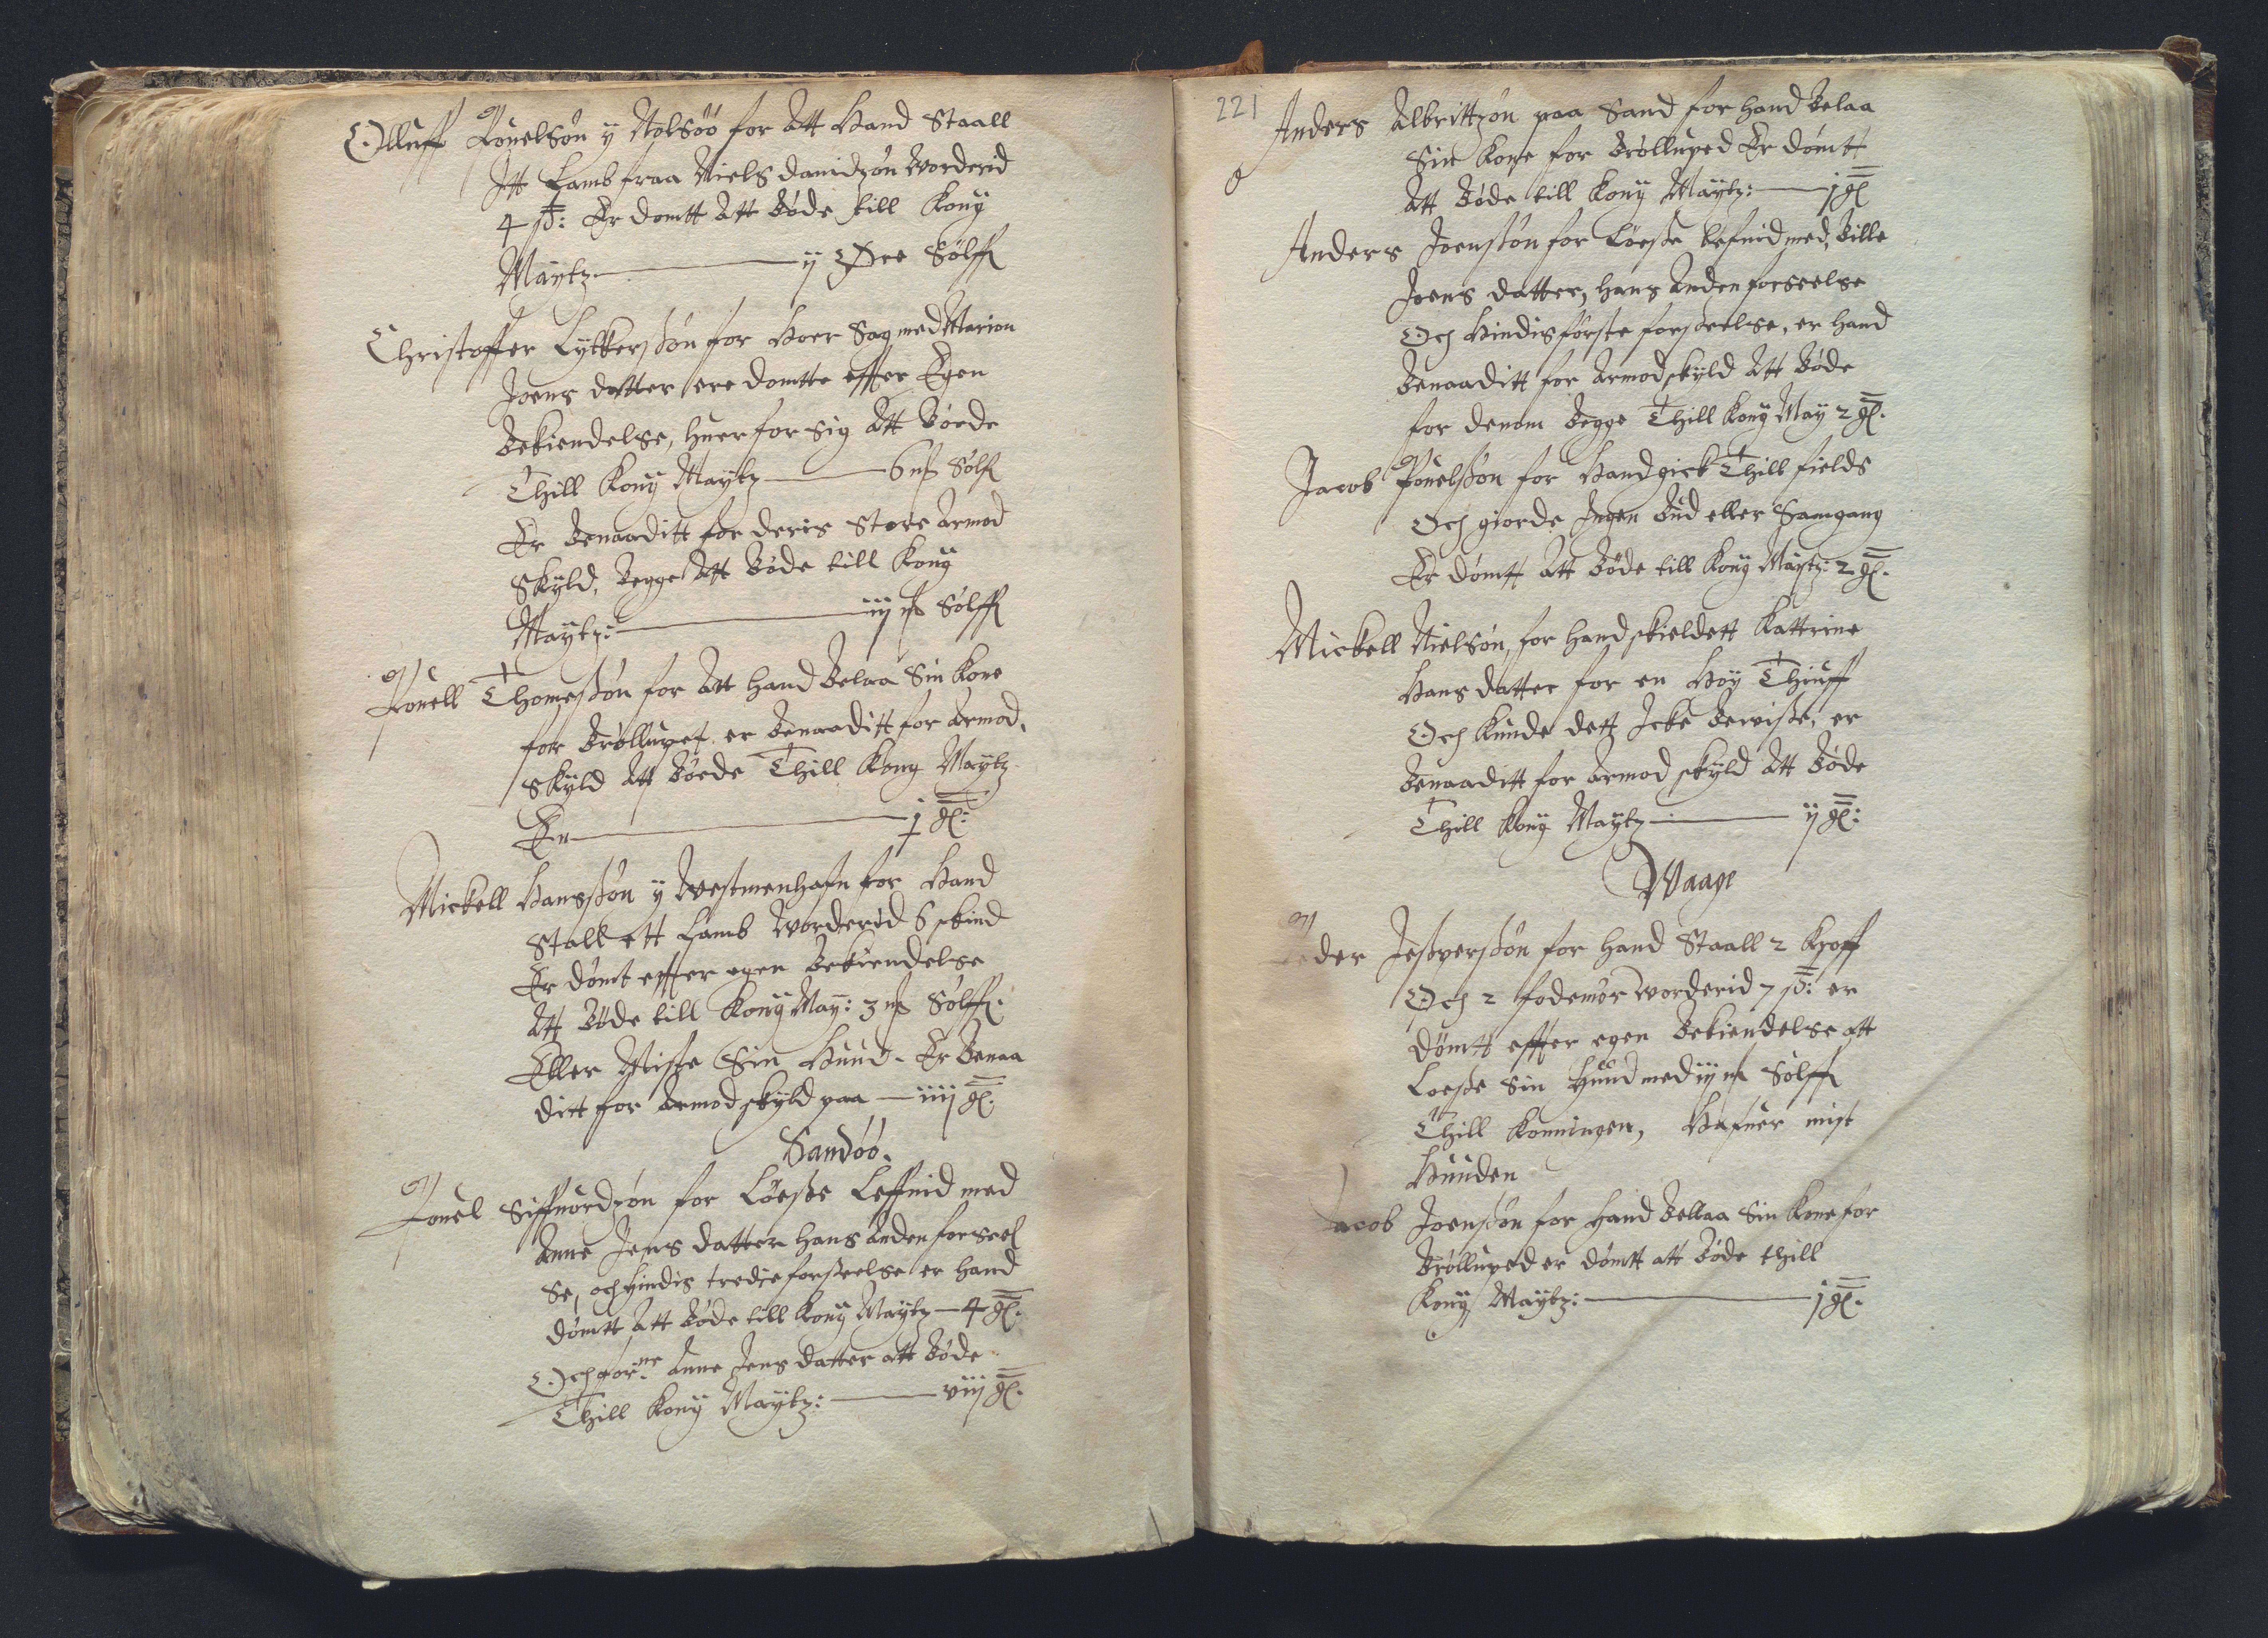 Olluff Pouelsøn y Nolsöö for Att Hand Staall
Itt Lamb fraa Niels dauidzøn Worderid
4 ß: Er domtt Att Bøde till Konng
Maÿtz ij Øre Sølff
Christoffer Lÿkkersßøn for Hoer Sag med Marion
Joens datter ere domtte effter Egen
Bekiendelse, huer for sig Att Bøede
Thill Konng Maÿtz 6 mk Sølff
Er Benaaditt for deris Store Armod
Skÿld, Begge Att Bøde till Konng
Maÿtz: iij mk Sølff
Pouell Thomesßøn for Att hand Belaa Sin Kone
for Brøllupet er Benaaditt for Armod,
Skÿld Att Bøede Thill Kong Maÿtz
En j gl:
Mickell Hansßøn ÿ Westmenhafn for Hand
Stall ett Lamb worderid 6 skind
Er dømt effter egen Bekiendelse
Att Bøde till Konng Maÿ: 3 mk Sølff.
Eller Miste Sin Huud. Er Benaa
ditt for Armod skÿld paa iiij gl.
Sandöö.
Pouel Siffuordzøn for Løeße Leffnid med
Anne Jens datter hans Anden forseel
Se, och hindis tredie forßeelse er hand
dømtt Att Bøde till Konng Maÿtz 4 gl.
Och for:ne Anne Jens datter att Bøde
Thill Konng Maÿtz: viij gl.
221
Anders Albrittzøn paa Sand for hand Belaa
Sin Kone for Brølluped Er dømtt
Att Bøde till Konng Maÿtz: j gl
Anders Joensßøn for Løeße lefnid med, Bille
Joens datter, hans Anden forseelse
Och Hindis første forßeelse, er hand
Benaaditt for Armod skÿld Att Bøde
for denom Begge Thill Kong Maÿ 2 gl.
Jacob Pouelsßøn for Hand gick Thill fields
Och giorde Ingen Bud eller Samgang
Er dømtt Att Bøde till Kong Maÿtz: 2 gl.
Mickell Nielsøn, for hand skieldett Kattrine
Hans datter for en Høÿ Thiuff
Och Kunde dett Icke Bewiße, er
Benaaditt for Armod skÿld Att Bøde
Thill Kong Maÿtz ij gl:
Waage
Peder Jesperßøn for hand Staall 2 Kroff
Och 2 fødemør worderid 7 ß: er
dømtt effter egen Bekiendelse att
Loeße Sin Huud med iij mk Sølff
Thill Konningen, Hafuer mist
Huuden
Jacob Joensßøn for hand Bellaa Sin Kone for
Brølluped er dømtt att Bøde thill
Konng Maÿtz: j gl.